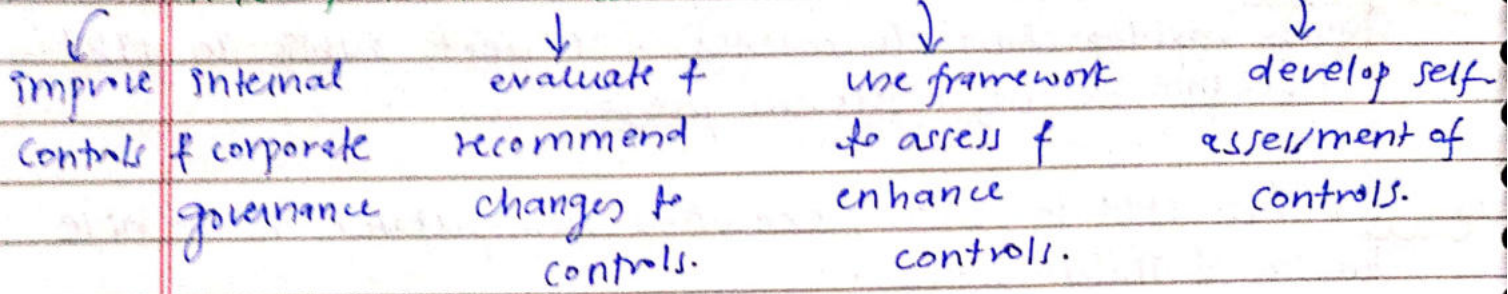 improve internal controls & corporate governance
evaluate & recommend changes to controls.
use framework to assess & enhance controls.
develop self assessment of controls.